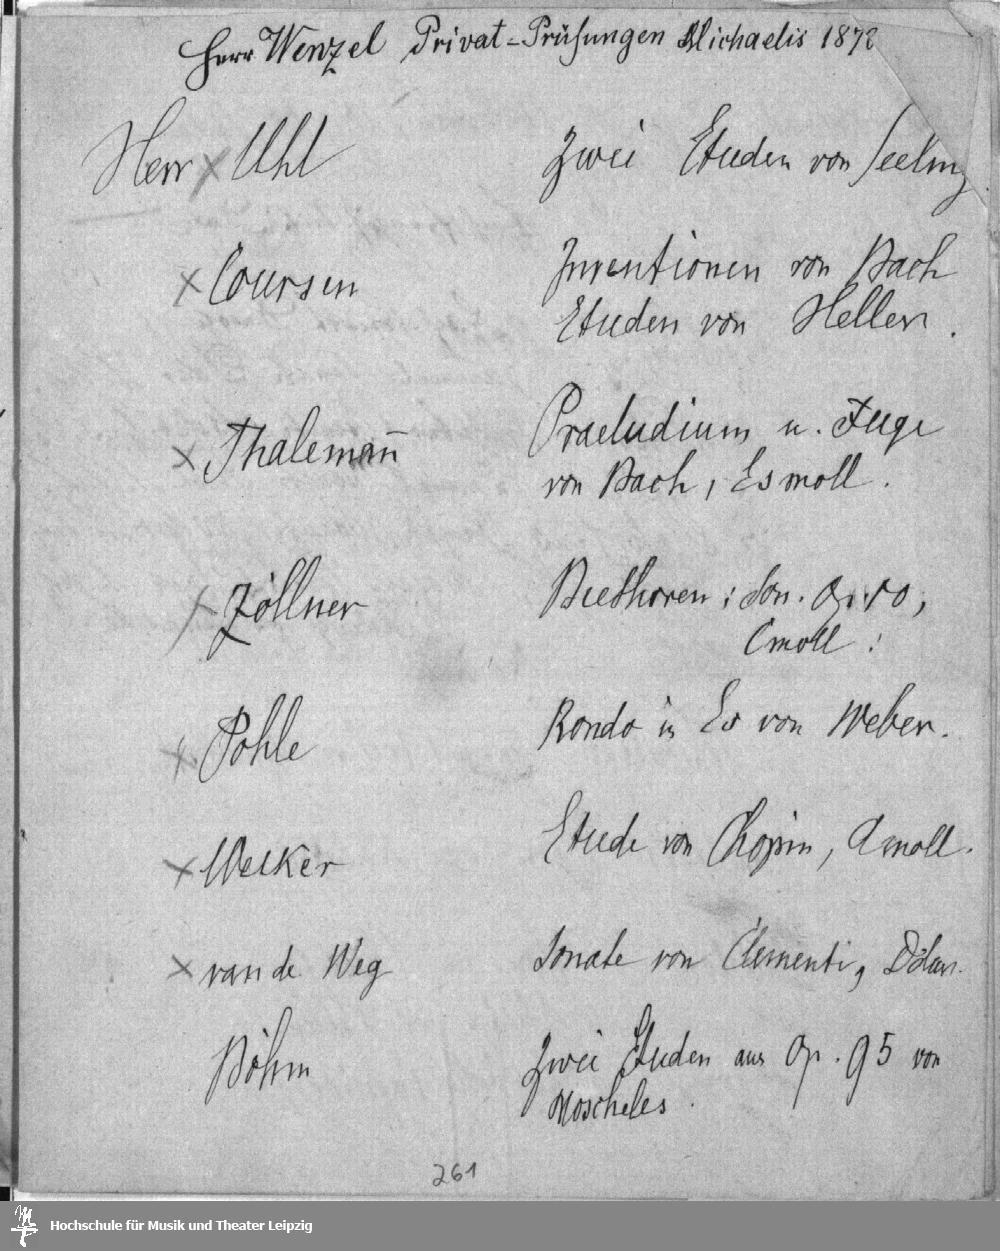 Herr Wenzel Privat-Prüfungen Michaelis 187
Herr x Uhl Zwei Etuden von Seeling
x Coursen Inventionen von Bach
Etuden von Heller.
x Thalemañ Praeludium u. Fuge
von Bach, Es moll.
x Zöllner Beethoven; Son. Op. 10,
Cmoll.
x Pohle Rondo in Es von Weber.
x Welker Etude von Chopin, Amoll.
x van de Weg Sonate von Clementi, Ddur.
Böhm Zwei Etuden aus Op. 95 von
Moscheles.
261
Hochschule für Musik und Theater Leipzig